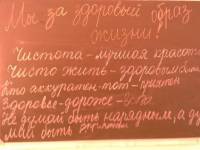 Мы за здоровый образ
жизни!
Чистота - лучшая красота
Чисто жить - здоровым быть
Кто аккуратен - тот приятен
Здоровье дороже
Не думай быть нарядным, а ду
май быть